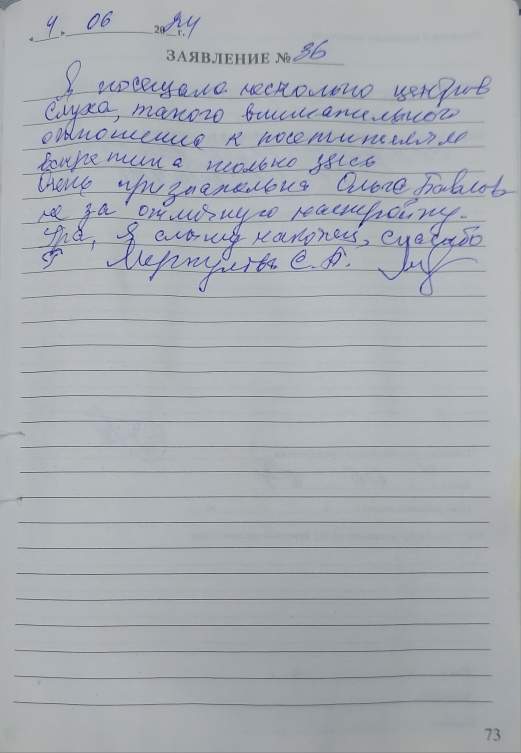 4. 06 2024 г.
ЗАЯВЛЕНИЕ № 36
Я посещала несколько центров
слуха, такого внимательного
отношения к посетителям
встретила только здесь
Очень признательна Ольга Павлов
не за отличную настройку.
Ура, Я слышу наконец, спасибо
С. В.
73